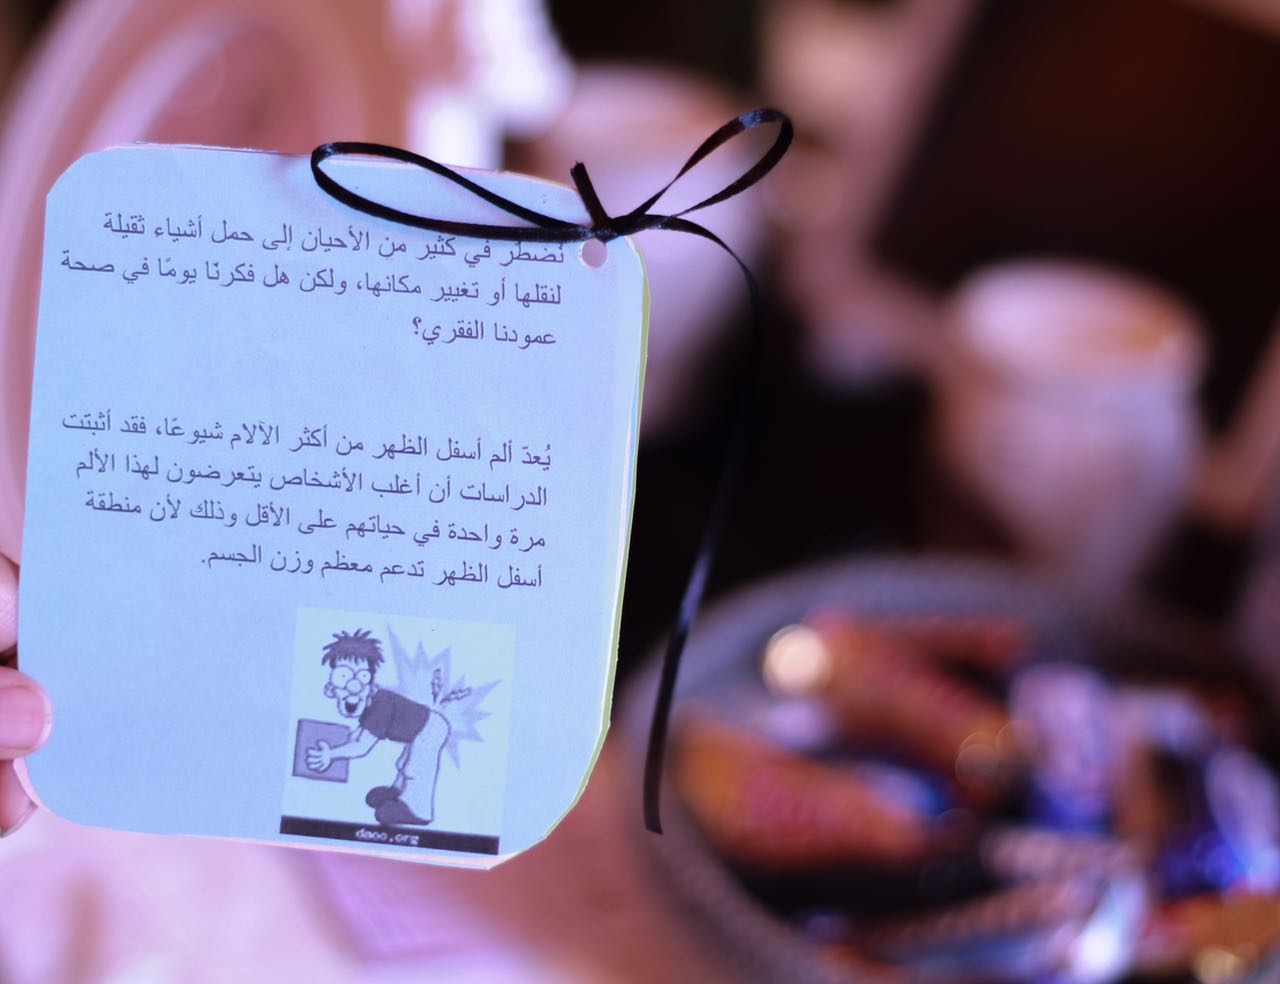 نُضطر في كثير من الأحيان إلى حمل أشياء ثقيلة
لنقلها أو تغيير مكانها، ولكن هل فكرنّا يومًا في صحة
عمودنا الفقري؟
يُعدّ ألم أسفل الظهر من أكثر الآلام شيوعًا، فقد أثبتت
الدراسات أن أغلب الأشخاص يتعرضون لهذا الألم
مرة واحدة في حياتهم على الأقل وذلك لأن منطقة
أسفل الظهر تدعم معظم وزن الجسم.